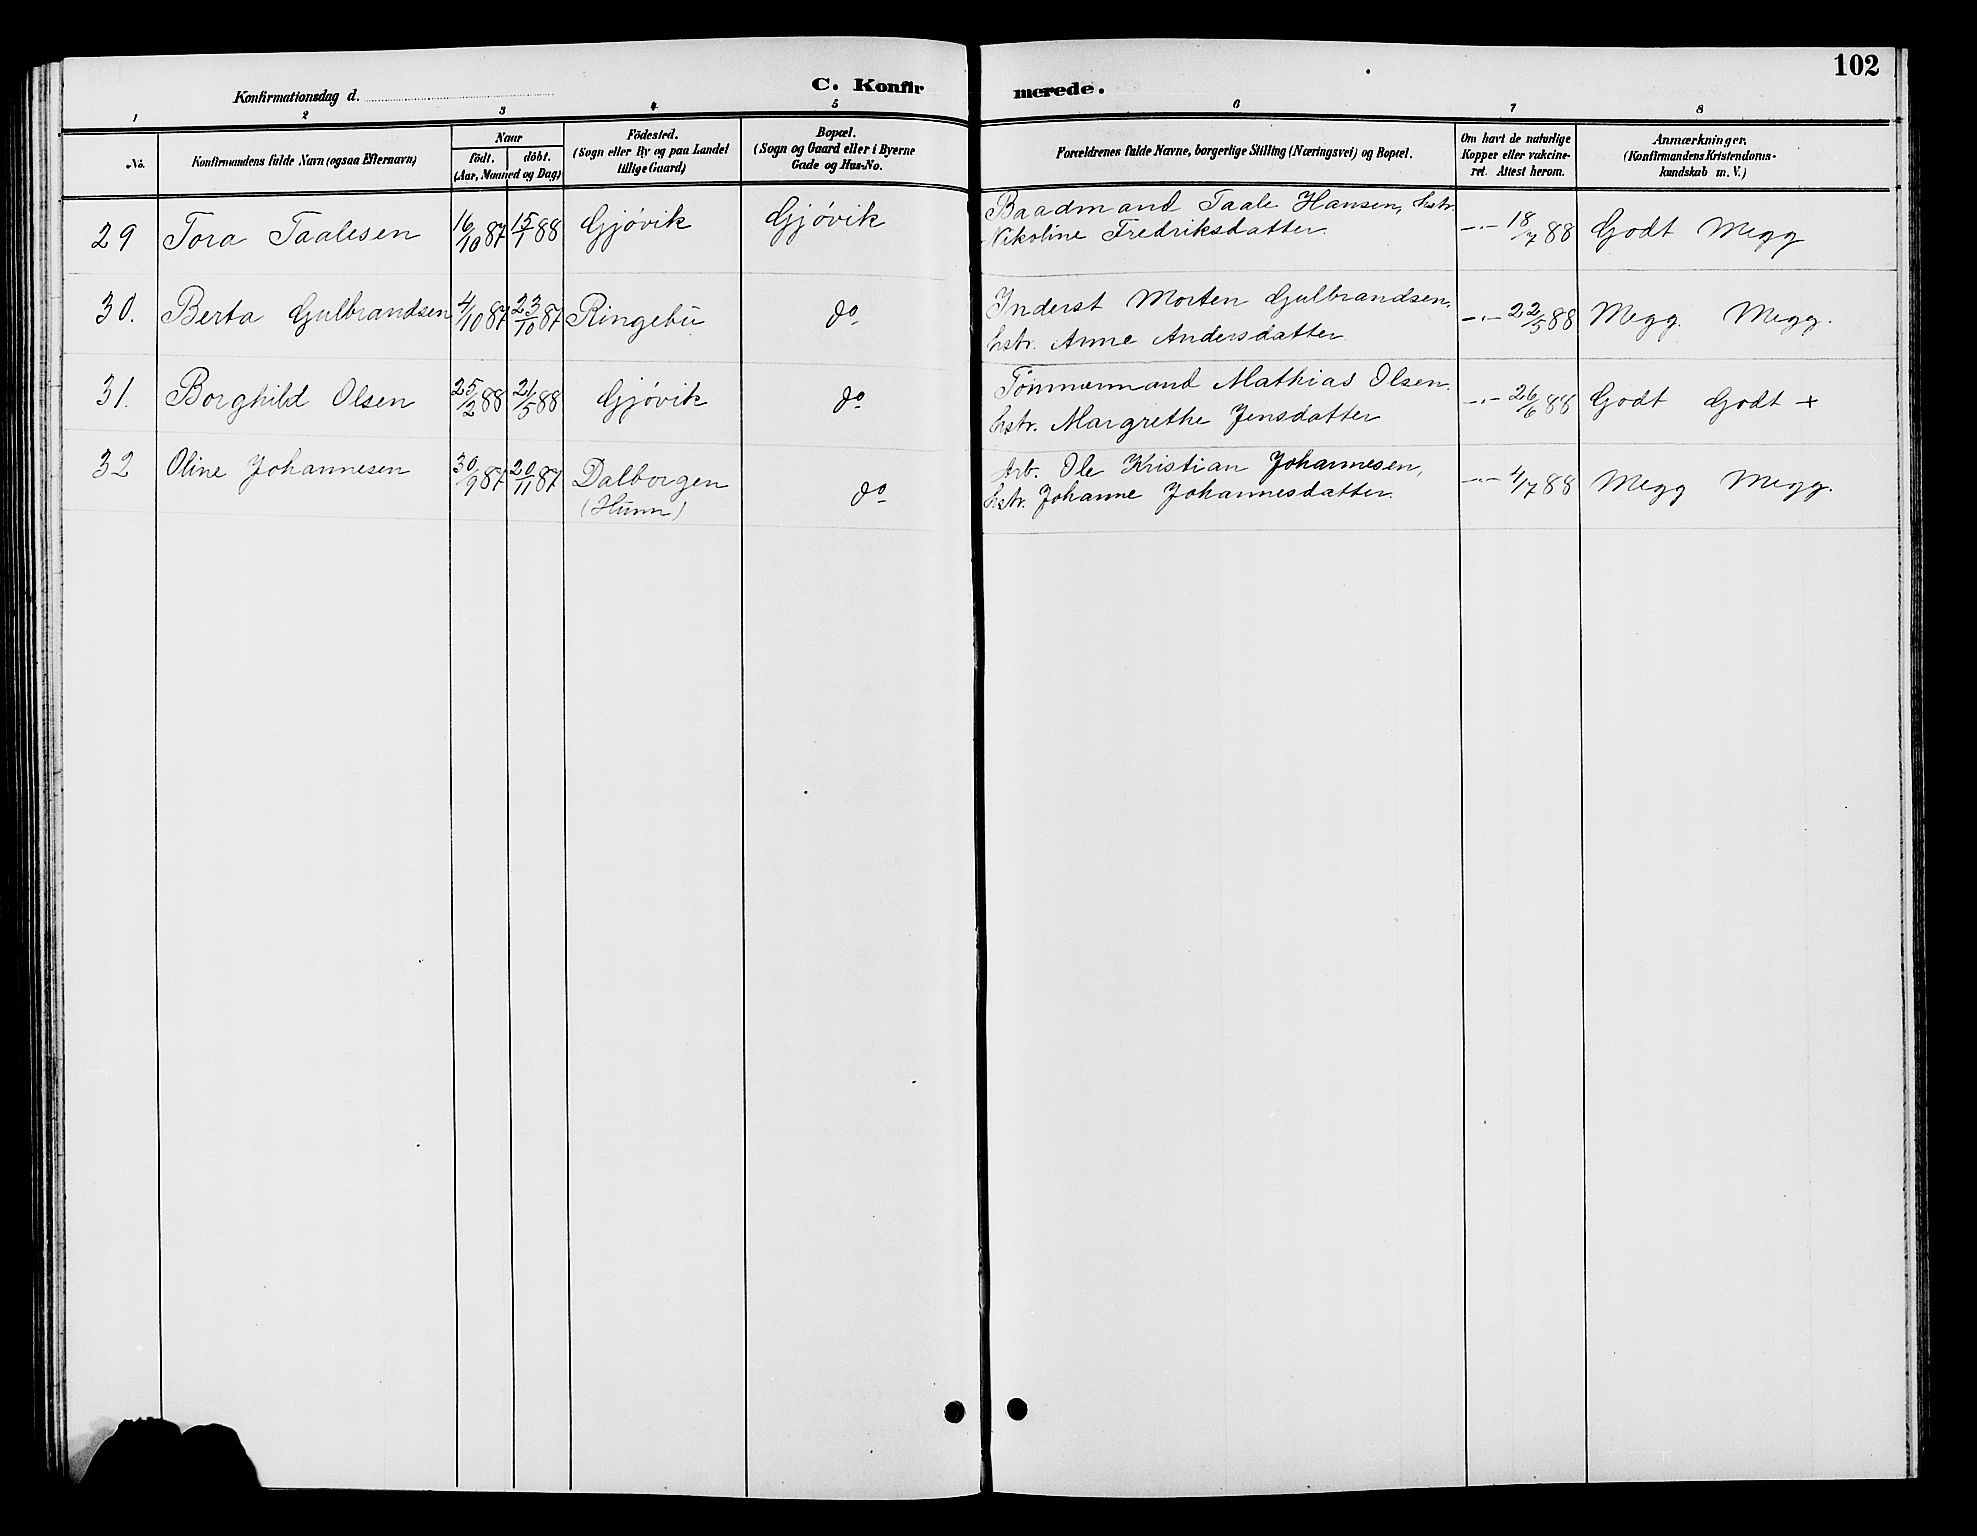 102
Konfirmationsdag d.
C. Konfirmerede.
1 2 3 4 5 6 7 8
No.
Konfirmandens fulde Navn (ogsaa Efternavn)
Naar
födt. döbt.
(Aar, Maaned og Dag)
Födested.
(Sogn eller By og paa Landet
tillige Gaard)
Bopæl.
(Sogn og Gaard eller i Byerne
Gade og Hus-No.
Forældrenes fulde Navne, borgerlige Stilling (Næringsvei) og Bopæl.
Om havt de naturlige
Kopper eller vakcine-
ret. Attest herom.
Anmærkninger.
(Konfirmandens Kristendoms-
kundskab m. V.)
29 Tora Taalesen 16/10 87 15/1 88 Gjøvik Gjøvik
Baadmand Taale Hansen, hstr.
Nikoline Fredriksdatter.
—"— 18/7 88 Godt Megg
30. Berta Gulbrandsen 4/10 87 23/10 87 Ringebu do
Inderst Morten Gulbrandsen,
hstr. Anne Andersdatter.
—"— 22/5 88 Megg. Megg.
31. Borghild Olsen 25/2 88 21/5 88 Gjøvik do
Tömmermand Mathias Olsen.
hstr. Margrethe Jensdatter
—"— 26/6 88 Godt Godt +
32 Oline Johannesen 30/9 87 20/11 87 Dalborgen
(Hunn)
do
Arb. Ole Kristian Johannesen,
hstr. Johanne Johannesdatter.
—"— 4/7 88 Megg Megg.